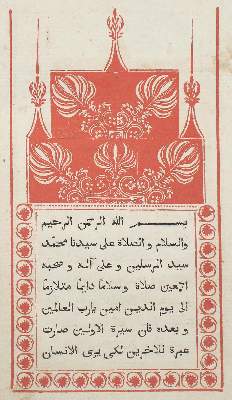 بسم الله الرحمن الرحيم
والسلام و الصلاة على سيدنا محمد
سيد المرسلين و على آله و صحبه
اجمعين صلاة و سلاما دايما متلازما
الى يوم الدين امين يارب العالمين
و بعده فان سيرة الاولين صارت
عبرة للاخرين لكى يرى الانسان